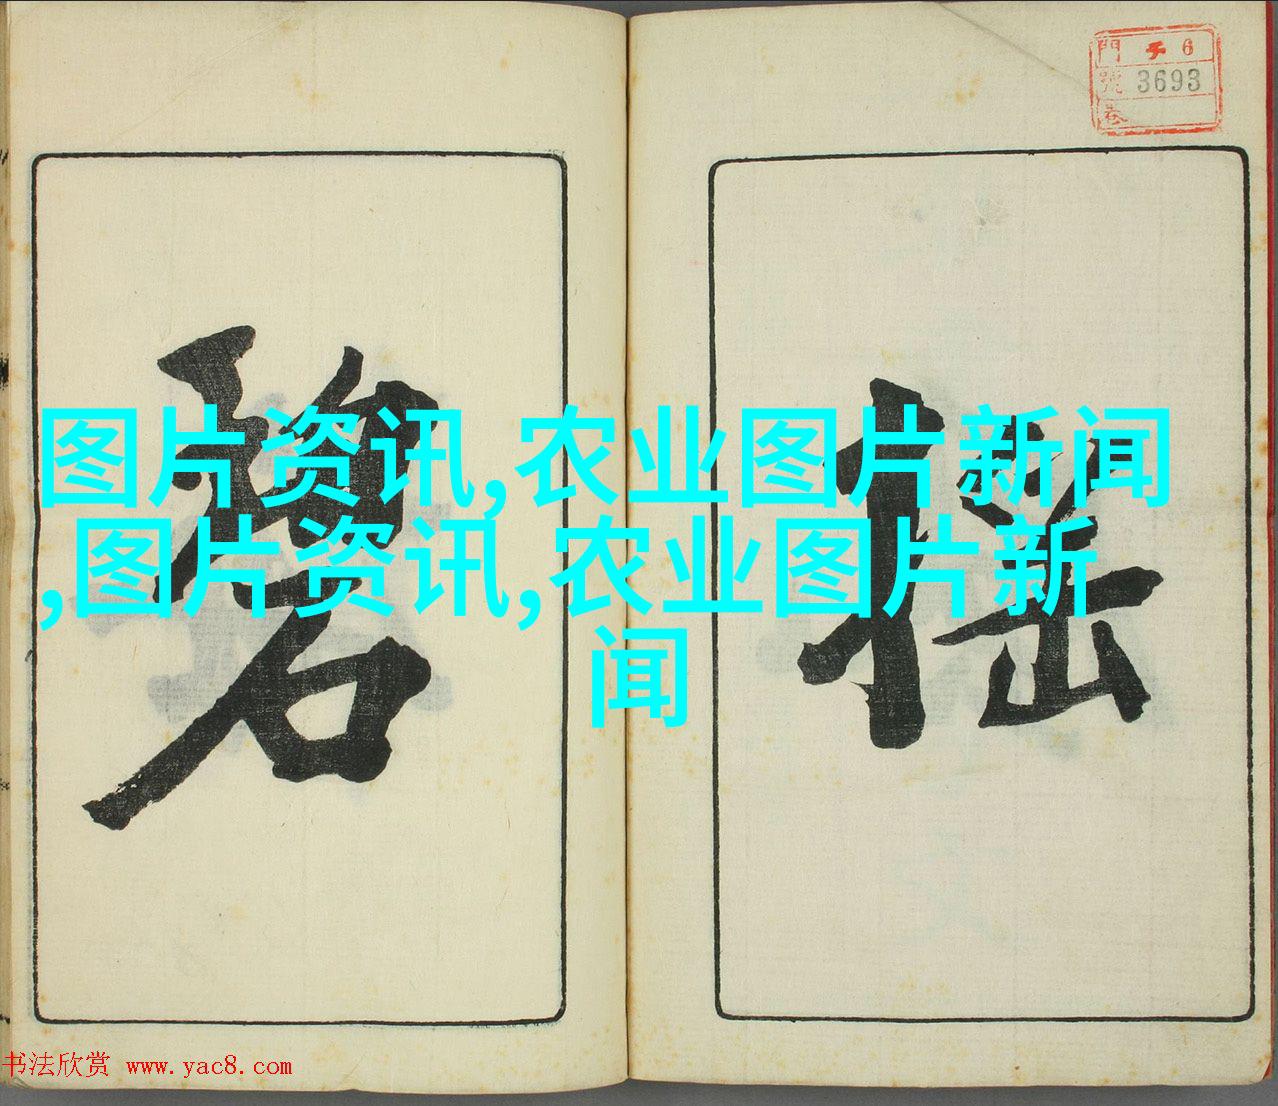 門 チ 6
號 3693
卷
搖
碧
图片资讯,农业图片新闻
,图片资讯,农业图片新
闻
书法欣赏 www.yac8.com